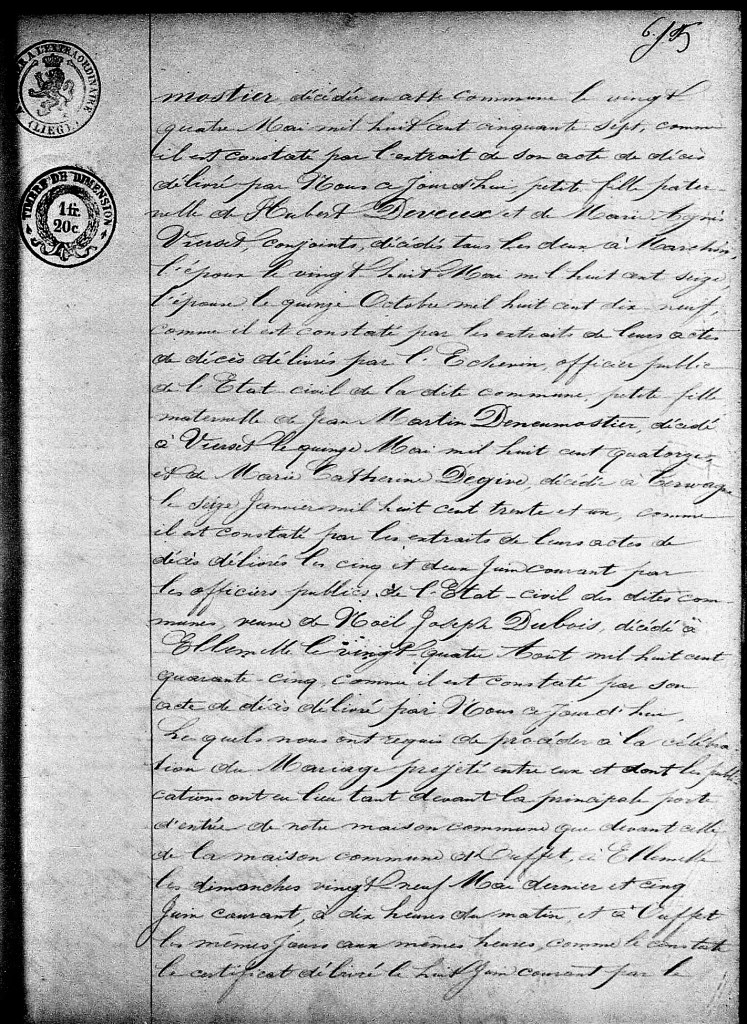 A L'EXTRAORDINAIRE
(LIEGE)
TIMBRE DE DIMENSION
1 fr.
20 c
mostier, décédée en cette commune le vingt
quatre Mai mil huit cent cinquante sept, comme
il est constaté par l'extrait de son acte de décès
délivré par Nous ce jourd'hui, petite fille pater-
nelle de Hubert Deveux et de Marie Agnès
Vierset, conjoints, décédés tous les deux à Marchin,
l'époux le vingt huit Mai mil huit cent seize,
l'épouse le quinze Octobre mil huit cent dix neuf,
comme il est constaté par les extraits de leurs actes
de décès délivrés par l'Echevin, officier public
de l'Etat-civil de la dite commune, petite fille
maternelle de Jean Martin Deneumostier, décédé
à Vierset le quinze Mai mil huit cent quatorze,
et de Marie Catherine Degive, décédée à Terwagne
le seize Janvier mil huit cent trente et un, comme
il est constaté par les extraits de leurs actes de
décès délivrés les cinq et deux Juin courant par
les officiers publics de l'Etat-civil des dites com-
munes, veuve de Noël Joseph Dubois, décédé à
Ellemelle le vingt-quatre Août mil huit cent
quarante-cinq, comme il est constaté par son
acte de décès délivré par Nous ce jourd'hui,
Lesquels nous ont requis de procéder à la célébra-
tion du Mariage projeté entre eux et dont les publi-
cations ont eu lieu tant devant la principale porte
d'entrée de notre maison commune que devant celle
de la maison commune d'Ouffet, à Ellemelle
les dimanches vingt neuf Mai dernier et cinq
Juin courant, à dix heures du matin, et à Ouffet
les mêmes jours aux mêmes heures, comme le constate
le certificat délivré le huit Juin courant par le